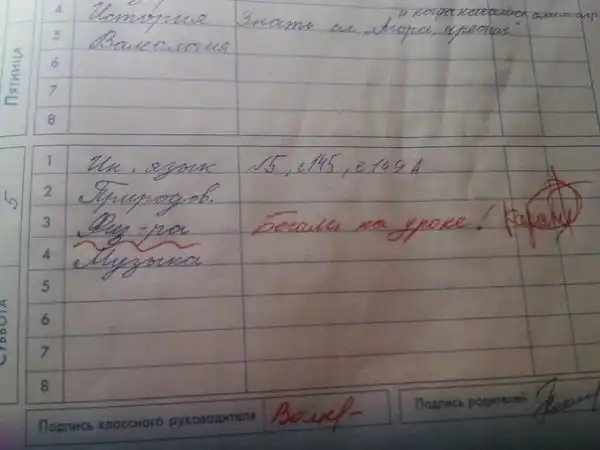 4 История Знать
5 Валеология
6
7
8
ПЯТНИЦА
5
СУББОТА
1 Ин. язык √5, с 145, с 149 А
2 Природов.
3 Физ-ра Бегали на уроке!
4 Музыка
5
6
7
8
Подпись классного руководителя
Подпись родителей